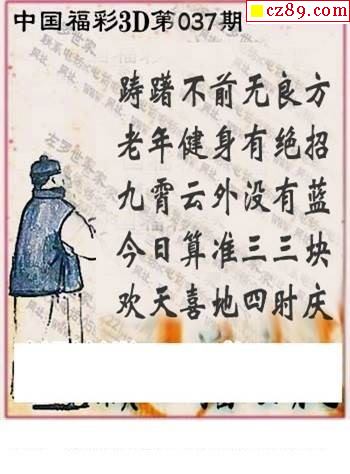 cz89.com
中国福彩3D第037期
踌躇不前无良方
老年健身有绝招
九霄云外没有蓝
今日算准三三块
欢天喜地四时庆